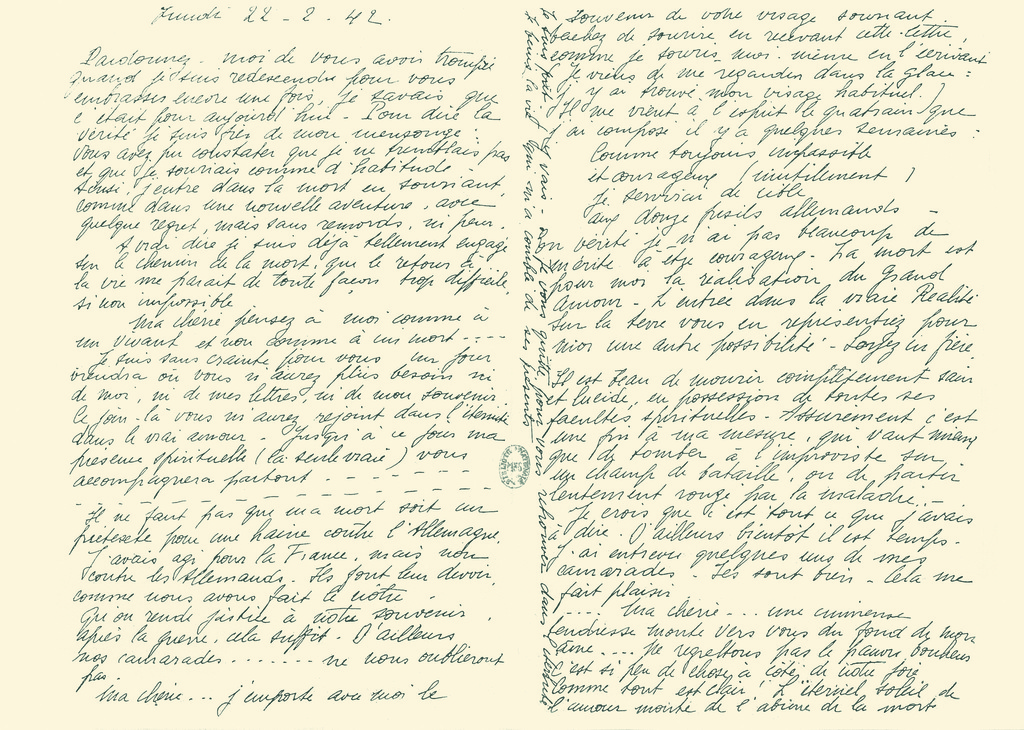 Lundi 22-2-42.
Pardonnez-moi de vous avoir trompé
quand je suis redescendu pour vous
embrasser encore une fois, je savais que
c'était pour aujourd'hui - Pour dire la
vérité je suis fier de mon mensonge :
Vous avez pu constater que je ne tremblais pas
et que je souriais comme d'habitude -
Ainsi, j'entre dans la mort en souriant,
comme dans une nouvelle aventure, avec
quelque regret, mais sans remords, ni peur.
A vrai dire je suis déjà tellement engagé
sur le chemin de la mort, que le retour à
la vie me paraît de toute façon trop difficile,
sinon impossible
Ma chérie pensez à moi comme à
un vivant et non comme à un mort ----
Je suis sans crainte pour vous, un jour
viendra où vous n'aurez plus besoin ni
de moi, ni de mes lettres, ni de mon souvenir.
Ce jour-là vous m'aurez rejoint dans l'éternité
dans le vrai amour - Jusqu'à ce jour ma
présence spirituelle (la seule vraie) vous
accompagnera partout - - - -
Il ne faut pas que ma mort soit un
prétexte pour une haine contre l'Allemagne,
J'avais agi pour la France, mais non
contre les Allemands. Ils font leur devoir,
comme nous avons fait le nôtre
Qu'on rende justice à notre souvenir
après la guerre, cela suffit. D'ailleurs
nos camarades ....... ne nous oublieront
pas
Ma chérie ... j'emporte avec moi le
souvenir de votre visage souriant.
tachez de sourire en recevant cette lettre,
comme je souris moi-même en l'écrivant
(Je viens de me regarder dans la glace :
j'y ai trouvé mon visage habituel.)
Il me vient à l'esprit le quatrain que
j'ai composé il y a quelques semaines :
Comme toujours impassible
et courageux (inutilement)
Je servirai de cible
aux douze fusils allemands -
En vérité je n'ai pas beaucoup de
mérite à être courageux - La mort est
pour moi la réalisation du Grand
Amour - L'entrée dans la vraie Réalité
Sur la terre vous en représentiez pour
moi une autre possibilité - Soyez en fière
Il est beau de mourir complètement sain
et lucide, en possession de toutes ses
facultés spirituelles - Assurément c'est
une fin à ma mesure, qui vaut mieux
que de tomber à l'improviste sur
un champ de bataille, ou de partir
lentement rongé par la maladie -
Je crois que c'est tout ce que j'avais
à dire. D'ailleurs bientôt il est temps.
J'ai entrevu quelques uns de mes
camarades - Ils sont bien - Cela me
fait plaisir
.... Ma chérie ... une immense
tendresse monte vers vous du fond de mon
âme .... Ne regrettons pas le pauvre bonheur
c'est si peu de chose à côté de notre joie
Comme tout est clair ! L'éternel soleil de
l'amour monte de l'abîme de la mort
Je suis prêt - j'y vais - Je vous quitte pour vous retrouver dans l'éternité
Je bénis la vie qui m'a comblé de ses présents